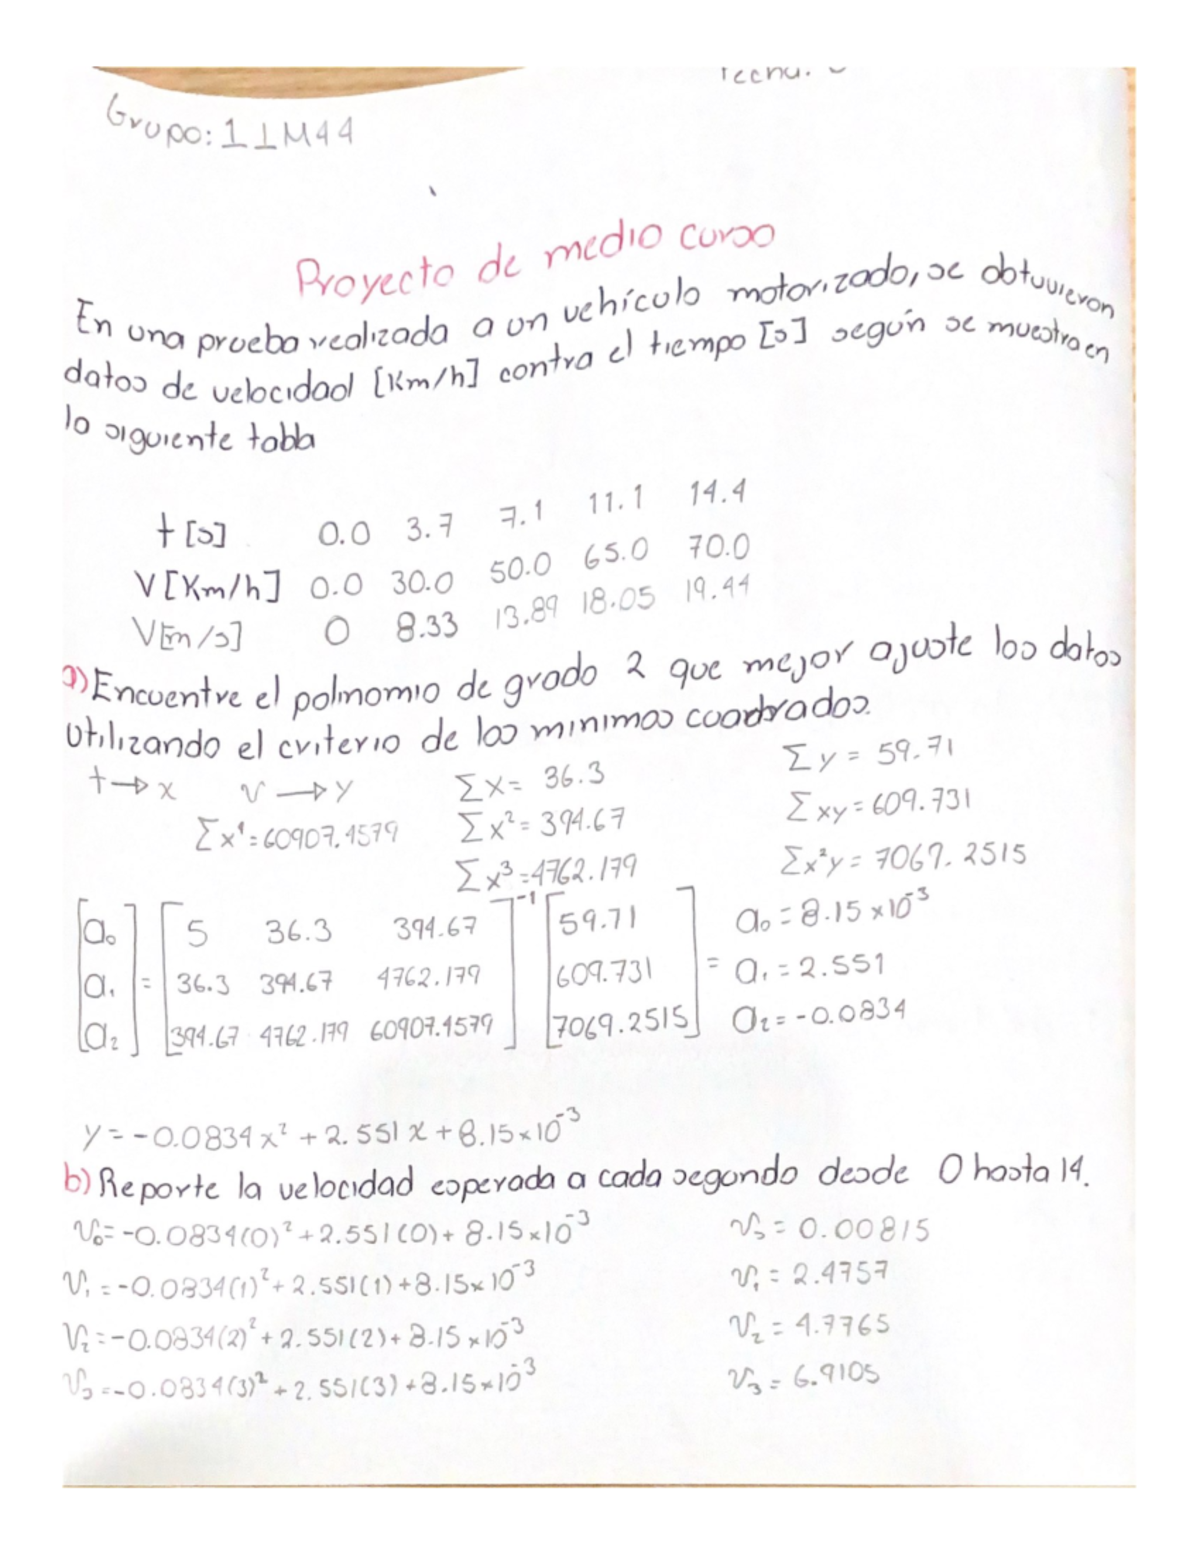 Grupo: 11M44
Proyecto de medio curso
En una prueba realizada a un vehículo motorizado, se obtuvieron
datos de velocidad [Km/h] contra el tiempo [s] según se muestra en
la siguiente tabla
t [s] 0.0 3.7 7.1 11.1 14.4
V [Km/h] 0.0 30.0 50.0 65.0 70.0
V[m/s] 0 8.33 13.89 18.05 19.44
a) Encuentre el polinomio de grado 2 que mejor ajuste los datos
utilizando el criterio de los minimos cuadrados.
t → x v → y Σx = 36.3 Σy = 59.71
Σx⁴ = 60907.4579 Σx² = 394.67 Σxy = 609.731
Σx³ = 4762.179 Σx²y = 7069.2515
[a₀] = [5 36.3 394.67]⁻¹ [59.71] a₀ = 8.15 x 10⁻³
[a₁] = [36.3 394.67 4762.179] [609.731] = a₁ = 2.551
[a₂] [394.67 4762.179 60907.4579] [7069.2515] a₂ = -0.0834
y = -0.0834x² + 2.551x + 8.15x10⁻³
b) Reporte la velocidad esperada a cada segundo desde 0 hasta 14.
v₀ = -0.0834(0)² + 2.551(0) + 8.15x10⁻³ v₀ = 0.00815
v₁ = -0.0834(1)² + 2.551(1) + 8.15x10⁻³ v₁ = 2.4757
v₂ = -0.0834(2)² + 2.551(2) + 8.15x10⁻³ v₂ = 4.7765
v₃ = -0.0834(3)² + 2.551(3) + 8.15x10⁻³ v₃ = 6.9105